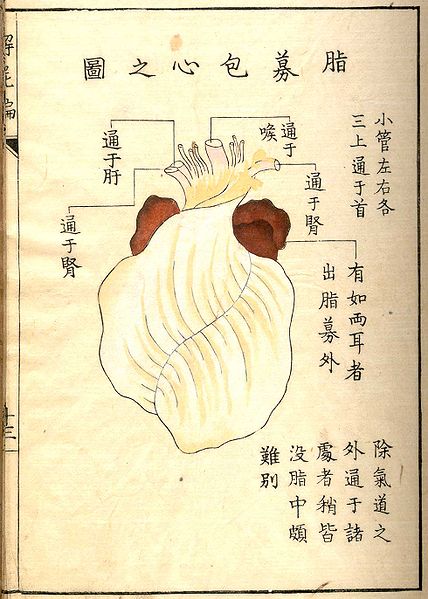 脂募包心之圖
小管左右各
三上通于首
通于
喉
通于腎
通于肝
通于腎
有如兩耳者
出脂募外
除氣道之
外通于諸
處者稍皆
没脂中頗
難別
解屍編
十三